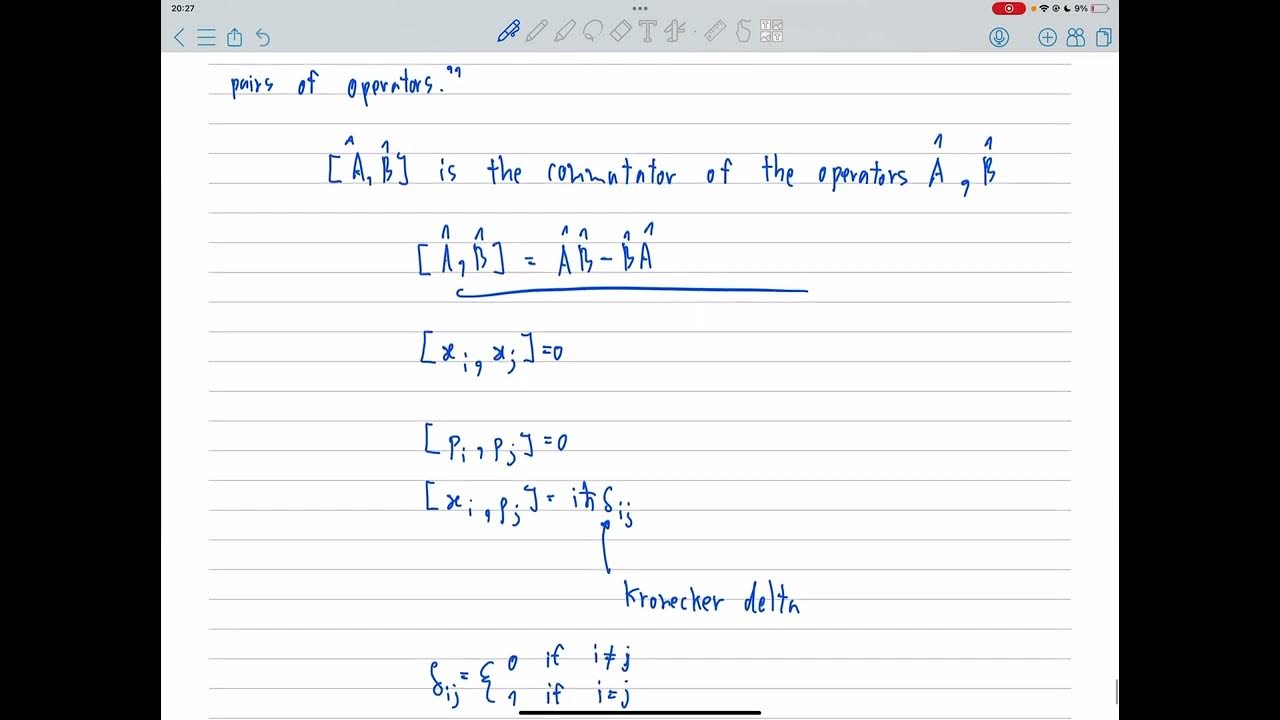 20:27
9%
pairs of operators."
[Â, B̂] is the commutator of the operators Â, B̂
[Â, B̂] = ÂB̂ - B̂Â
[x_i, x_j] = 0
[p_i, p_j] = 0
[x_i, p_j] = iħδ_ij
Kronecker delta
δ_ij = { 0 if i ≠ j
1 if i = j